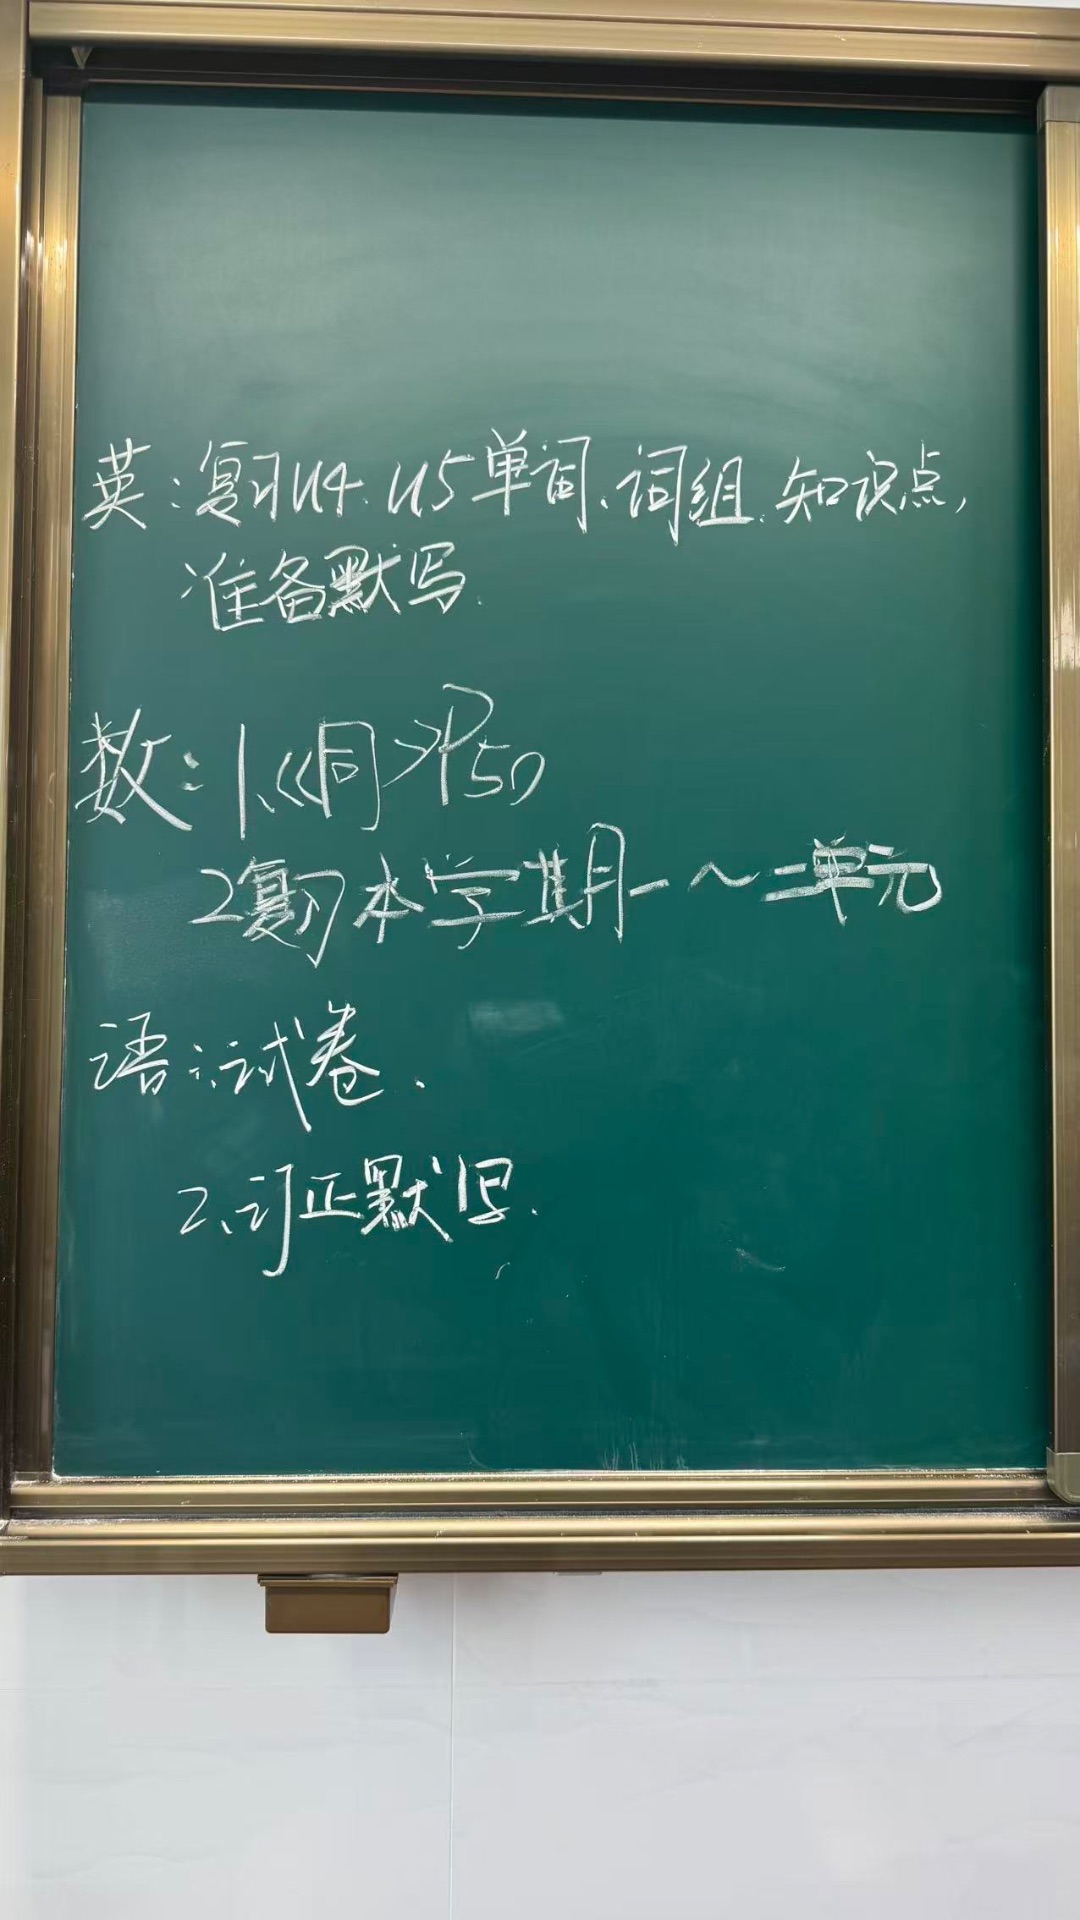 英：复习U4、U5单词、词组、知识点，
准备默写.
数：1.《同》P50
2复习本学期一～二单元
语：试卷.
2、订正默写.